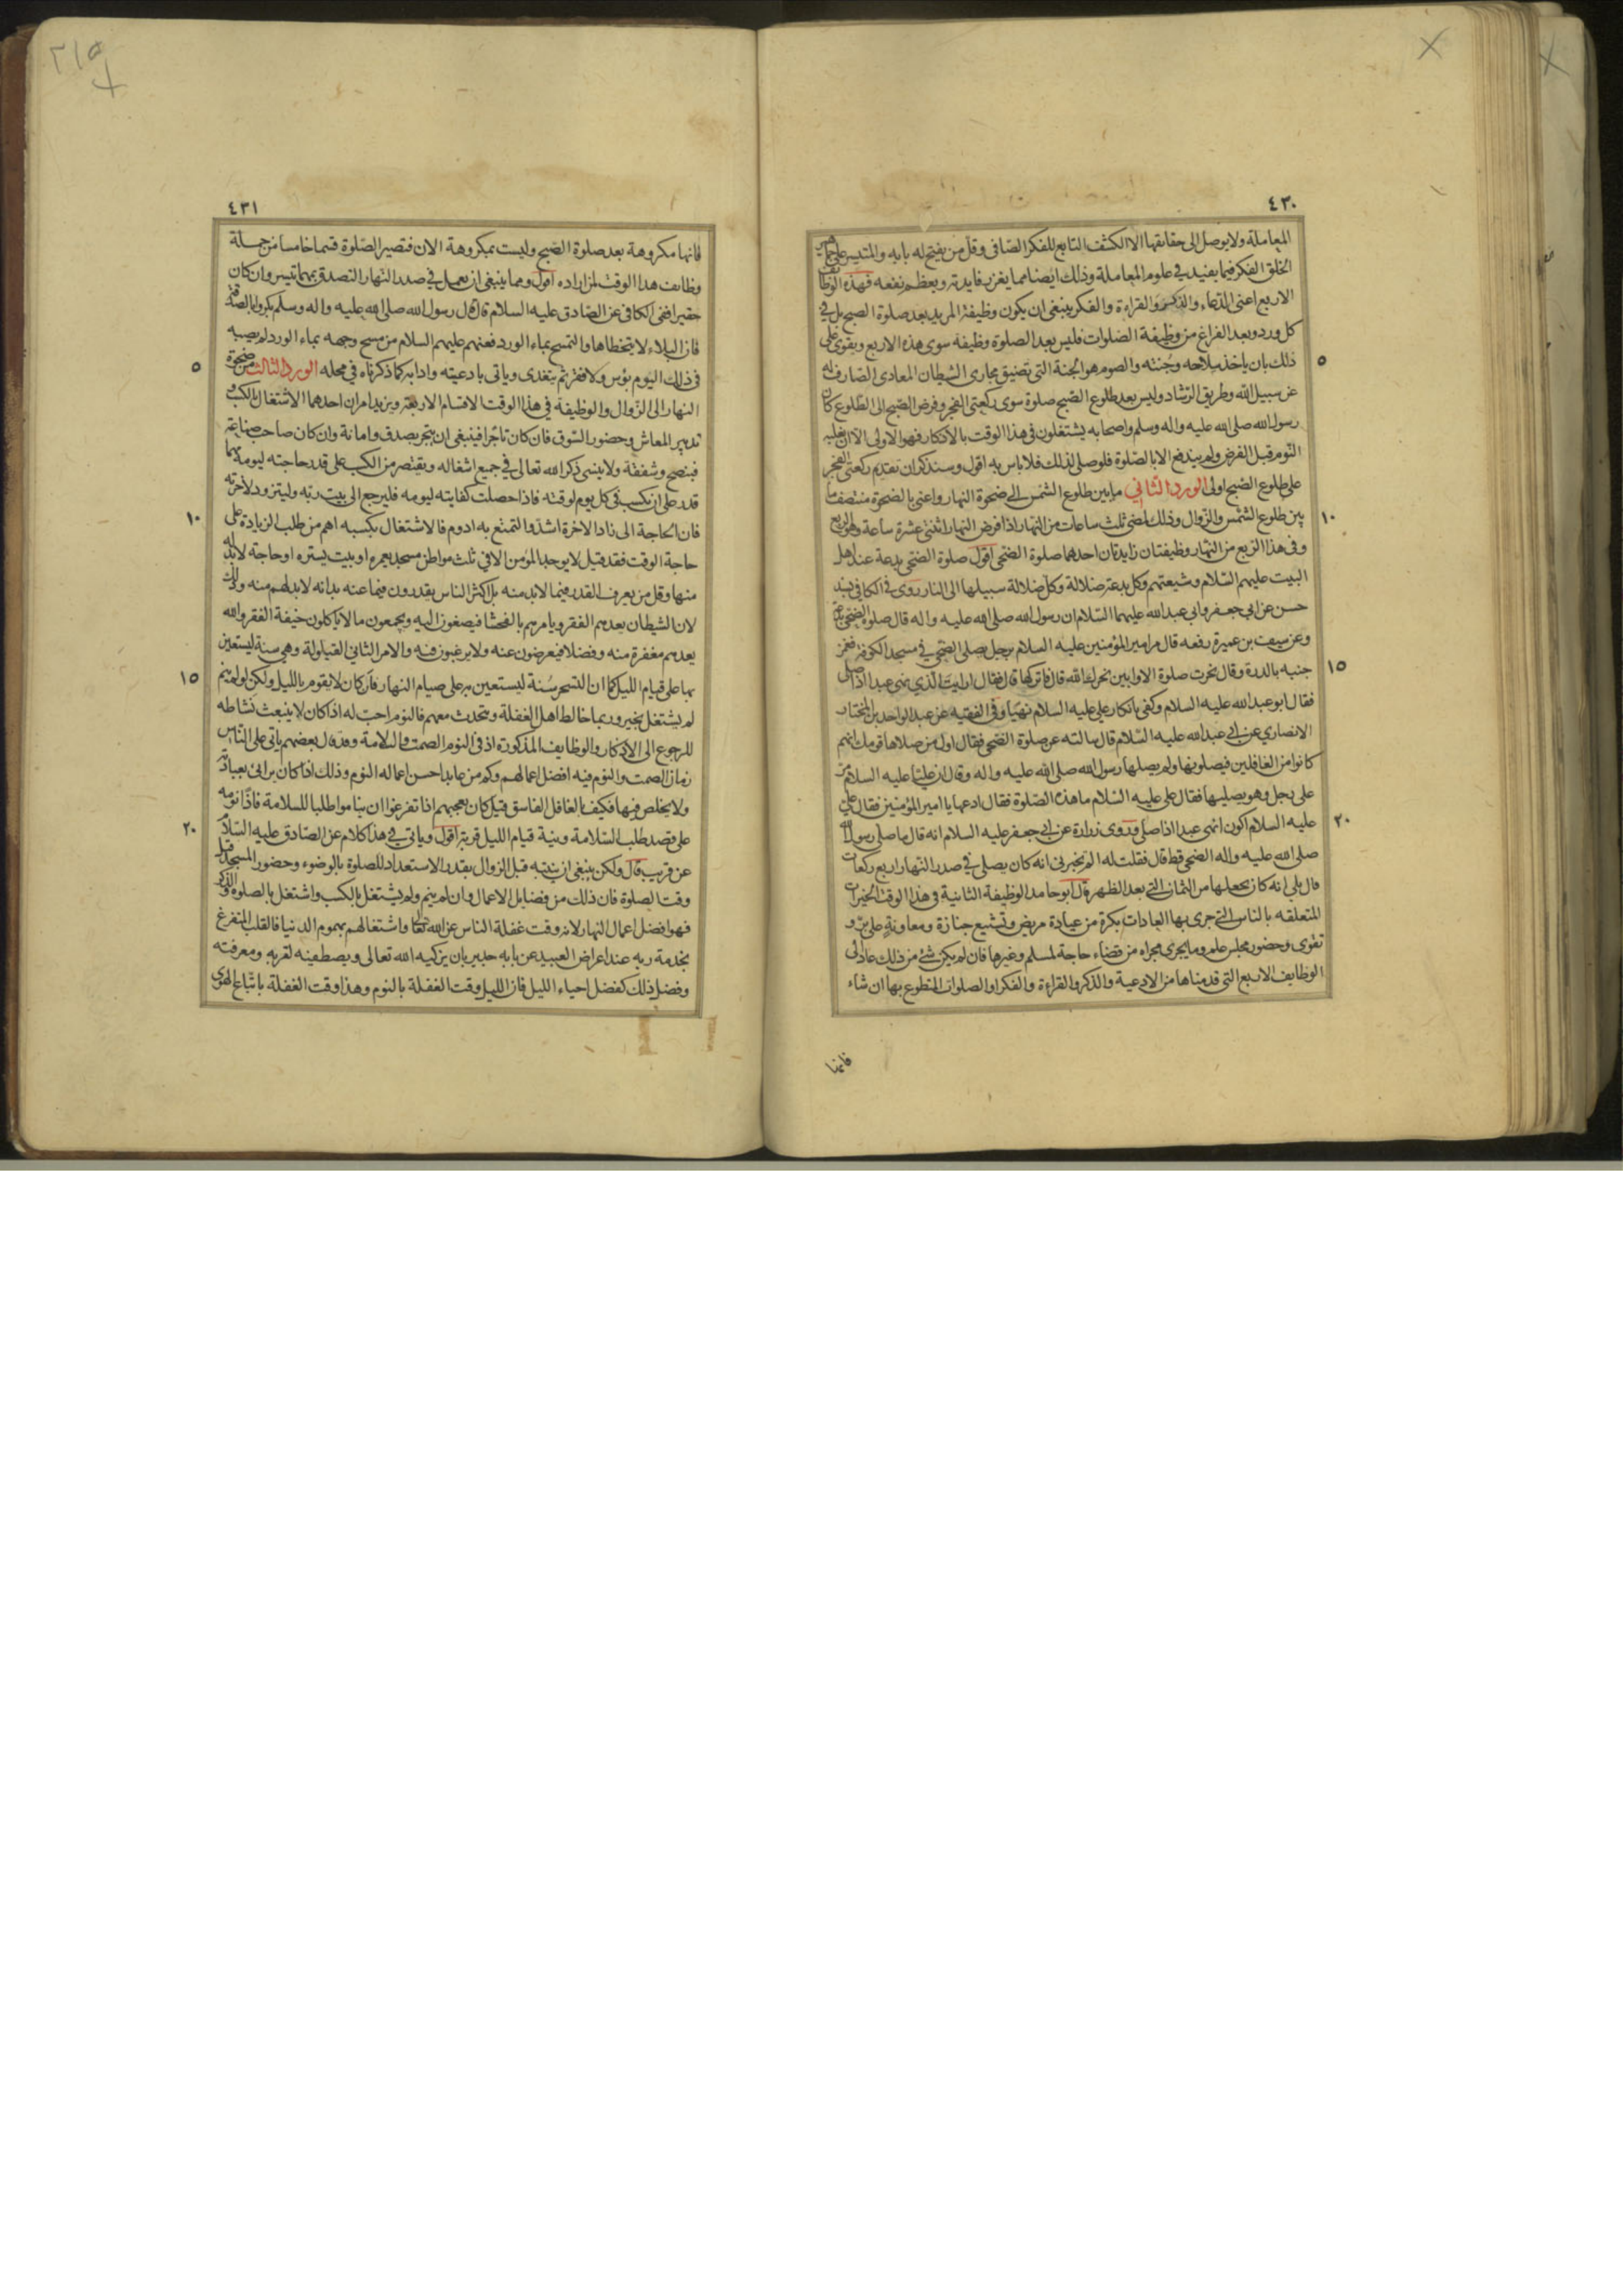 ٤٣٠
المعاملة ولا يوصل الى حقائقها الا الكشف التابع للفكر الصافى وقل من يفتح له بابه والمتيسر على جماهير
الخلق الفكر فيما يفيد في علوم المعاملة وذلك ايضا مما يغزر فايدته ويعظم نفعه فهذه الوظائف
الاربع اعنى الدعاء والذكر والقراءة والفكر ينبغى ان يكون وظيفة المريد بعد صلوة الصبح بل في
كل ورد وبعد الفراغ من وظيفة الصلوات فليس بعد الصلوة وظيفة سوى هذه الاربع ويقوى على
٥
ذلك بان ياخذ سلاحه وجنته والصوم هو الجنة التي تضيق مجارى الشيطان المعادى الصارف له
عن سبيل الله وطريق الرشاد وليس بعد طلوع الصبح صلوة سوى ركعتى الفجر وفرض الصبح الى الطلوع كان
رسول الله صلى الله عليه واله وسلم واصحابه يشتغلون في هذا الوقت بالاذكار فهو الاولى الا ان يغلبه
النوم قبل الفرض ولم يندفع الا بالصلوة فلو صلى لذلك فلا باس به اقول وسنذكر ان تقديم ركعتى الفجر
على طلوع الصبح اولى الورد الثاني ما بين طلوع الشمس الى ضحوة النهار واعنى بالضحوة منتصف ما
١٠
بين طلوع الشمس والزوال وذلك لمضى ثلث ساعات من النهار اذا فرض النهار اثنتى عشرة ساعة وهو الربع
وفى هذا الربع من النهار وظيفتان زايدتان احدهما صلوة الضحى اقول صلوة الضحى بدعة عند اهل
البيت عليهم السلام وشيعتهم وكل بدعة ضلالة وكل ضلالة سبيلها الى النار روى في الكافي بسند
حسن عن ابي جعفر وابي عبد الله عليهما السلام ان رسول الله صلى الله عليه واله قال صلوة الضحى بدعة
وعن سيف بن عميرة رفعه قال مر امير المؤمنين عليه السلام برجل يصلى الضحى في مسجد الكوفة فغمز
١٥
جنبه بالدرة وقال نحرت صلوة الاوابين نحرك الله قال فاتركها قال فقال ارايت الذي ينهى عبدا اذا صلى
فقال ابو عبد الله عليه السلام وكفى بانكار على عليه السلام نهيا وفى الفقيه عن عبد الواحد بن المختار
الانصاري عن ابي عبد الله عليه السلام قال سالته عن صلوة الضحى فقال اول من صلاها قومك انهم
كانوا من الغافلين فيصلونها ولم يصلها رسول الله صلى الله عليه واله وقال ان عليا عليه السلام مر
على رجل وهو يصليها فقال على عليه السلام ما هذه الصلوة فقال ادعها يا امير المؤمنين فقال على
٢٠
عليه السلام اكون انهى عبدا اذا صلى وروى زرارة عن ابي جعفر عليه السلام انه قال ما صلى رسول الله
صلى الله عليه واله الضحى قط قال فقلت له الم تخبرنى انه كان يصلى في صدر النهار اربع ركعات
قال بلى انه كان يجعلها من الثمان التي بعد الظهر قال ابو حامد الوظيفة الثانية في هذا الوقت الخيرات
المتعلقه بالناس التي جرى بها العادات بكرة من عيادة مريض وتشييع جنازة ومعاونة على بر و
تقوى وحضور مجلس علم وما يجرى مجراه من قضاء حاجة لمسلم وغيرها فان لم يكن شئ من ذلك عاد الى
الوظايف الاربع التي قدمناها من الادعية والذكر والقراءة والفكر او الصلوات المتطوع بها ان شاء
فانها
٢١٥
٤٣١
فانها مكروهة بعد صلوة الصبح وليست بمكروهة الان فتصير الصلوة قسما خامسا من جملة
وظائف هذا الوقت لمن اراده اقول ومما ينبغى ان يعمل في صدر النهار التصدق بمهما تيسر وان كان
حقيرا ففى الكافى عن الصادق عليه السلام قال قال رسول الله صلى الله عليه واله وسلم بكروا بالصدقة
فان البلاء لا يتخطاها والتمسح بماء الورد فعنهم عليهم السلام من مسح وجهه بماء الورد لم يصبه
٥
فى ذلك اليوم بؤس ولا فقر ثم يتغدى وياتى بادعيته وادابه كما ذكرناه في محله الورد الثالث من ضحوة
النهار الى الزوال والوظيفة في هذا الوقت الاقسام الاربعة ويزيد امران احدهما الاشتغال بالكسب و
تدبير المعاش وحضور السوق فان كان تاجرا فينبغى ان يتجر بصدق وامانة وان كان صاحب صناعة
فبنصح وشفقة ولا ينسى ذكر الله تعالى في جميع اشغاله ويقتصر من الكسب على قدر حاجته ليومه مهما
قدر على ان يكسب في كل يوم لوقته فاذا حصلت كفايته ليومه فليرجع الى بيت ربه وليتزود لاخرته
١٠
فان الحاجة الى زاد الاخرة اشد والتمتع به ادوم فالاشتغال بكسبه اهم من طلب الزيادة على
حاجة الوقت فقد قيل لا يوجد المؤمن الا في ثلث مواطن مسجد يعمره او بيت يستره او حاجة لا بد له
منها وقل من يعرف القدر فيما لا بد منه بل اكثر الناس يقدرون فيما عنه بد انه لا بد لهم منه وذلك
لان الشيطان يعدهم الفقر ويامرهم بالفحشا فيصغون اليه ويجمعون ما لا ياكلون خيفة الفقر والله
يعدهم مغفرة منه وفضلا فيعرضون عنه ولا يرغبون فيه والامر الثاني القيلولة وهي سنة ليستعين
١٥
بها على قيام الليل كما ان التسحر سنة ليستعين به على صيام النهار فان كان لا يقوم بالليل ولكن لو لم ينم
لم يشتغل بخير وربما خالط اهل الغفلة وتحدث معهم فالنوم احب له اذا كان لا ينبعث نشاطه
للرجوع الى الاذكار والوظايف المذكورة اذ في النوم الصمت والسلامة وقد قال بعضهم ياتى على الناس
زمان الصمت والنوم فيه افضل اعمالهم وكم من عابد احسن اعماله النوم وذلك اذا كان يرائى بعبادته
ولا يخلص فيها فكيف بالغافل الفاسق قيل كان يعجبهم اذا تفرغوا ان يناموا طلبا للسلامة فاذا نومه
٢٠
على قصد طلب السلامة ونية قيام الليل قربة اقول وياتي في هذا كلام عن الصادق عليه السلام
عن قريب قال ولكن ينبغى ان يتنبه قبل الزوال بقدر الاستعداد للصلوة بالوضوء وحضور المسجد قبل
وقت الصلوة فان ذلك من فضايل الاعمال وان لم ينم ولم يشتغل بالكسب واشتغل بالصلوة والذكر
فهو افضل اعمال النهار لانه وقت غفلة الناس عن الله تعالى واشتغالهم بهموم الدنيا فالقلب المتفرغ
بخدمة ربه عند اعراض العبيد عن بابه جدير بان يزكيه الله تعالى ويصطفيه لقربه ومعرفته
وفضل ذلك كفضل احياء الليل فان الليل وقت الغفلة بالنوم وهذا وقت الغفلة باتباع الهوى